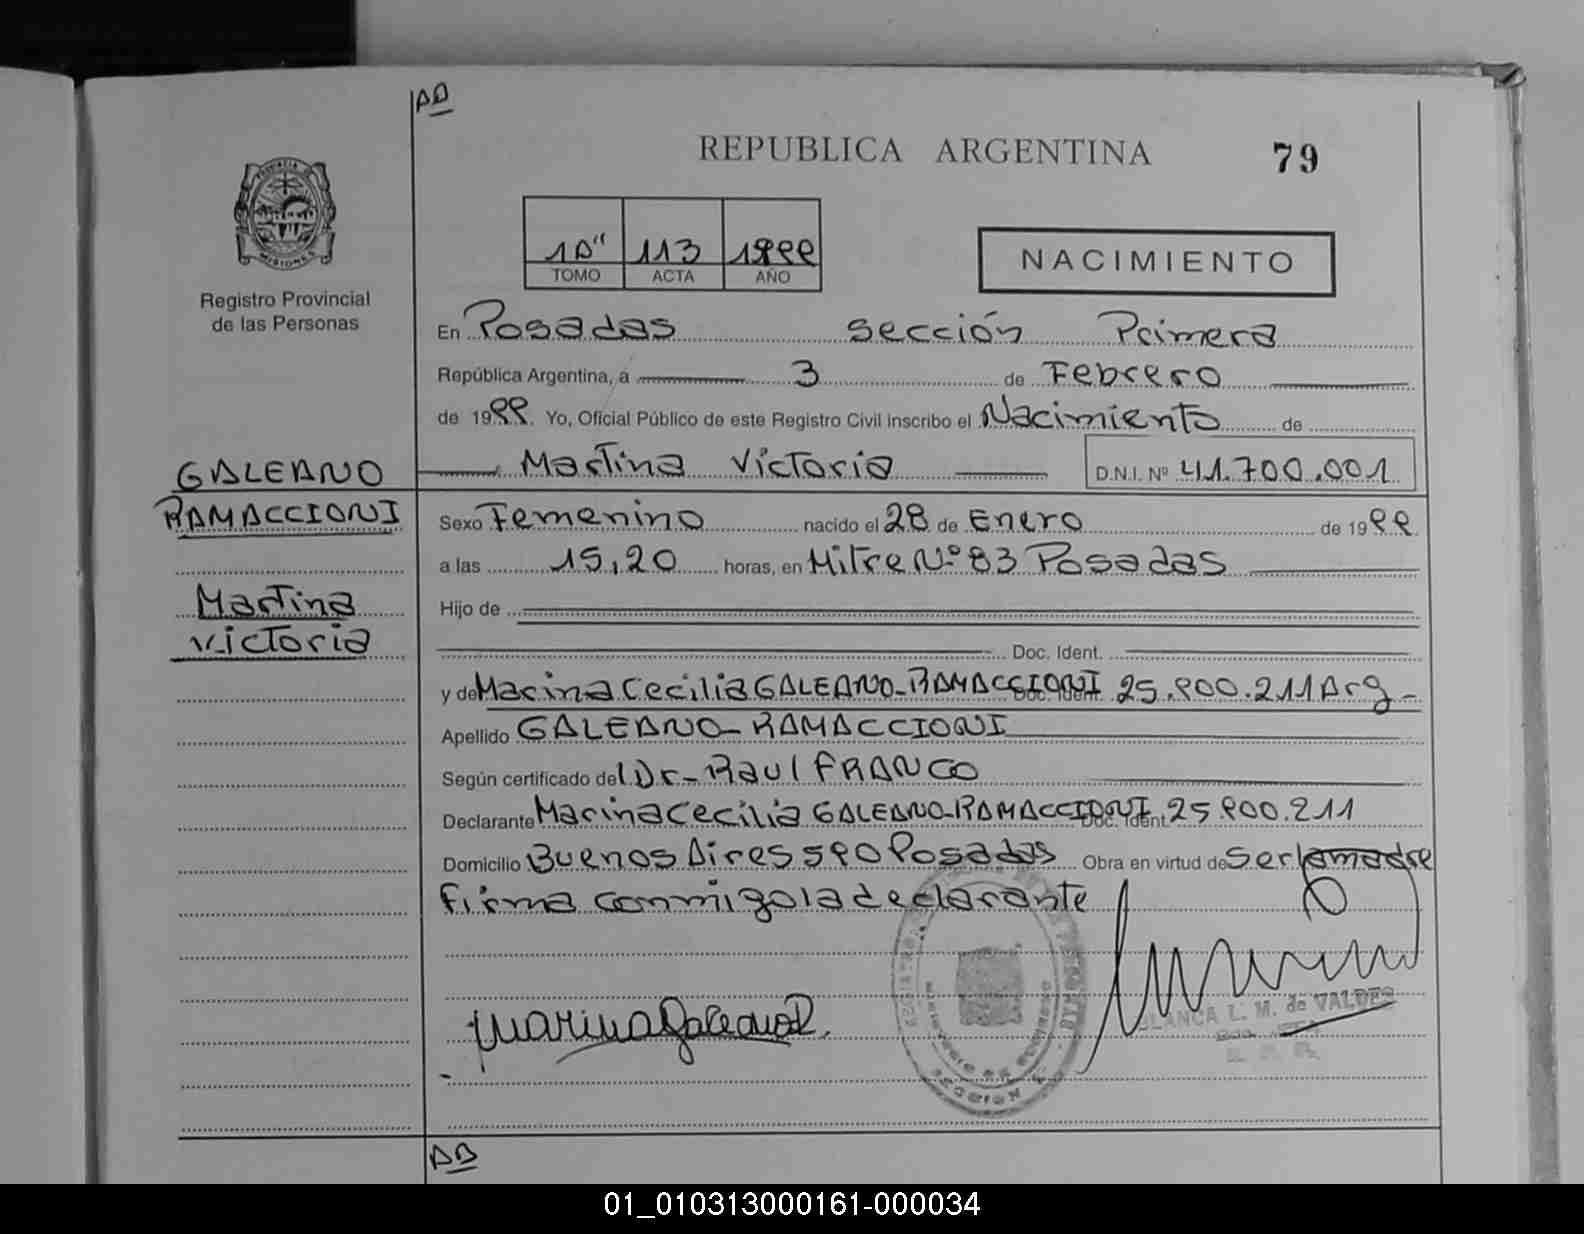 AD
REPUBLICA ARGENTINA
79
PROVINCIA DE
MISIONES
Registro Provincial
de las Personas
1D" 113 1999
TOMO ACTA AÑO
NACIMIENTO
En Posadas sección Primera
República Argentina, a 3 de Febrero
de 1999. Yo, Oficial Público de este Registro Civil inscribo el Nacimiento de
Martina Victoria D.N.I. Nº 41.700.001
GALEANO
RAMACCIONI
Martina
Victoria
Sexo Femenino nacido el 28 de Enero de 1999
a las 15,20 horas, en Mitre Nº 83 Posadas
Hijo de
Doc. Ident.
y de Marina Cecilia GALEANO-RAMACCIONI Doc. Ident. 25.900.211 Arg-
Apellido GALEANO-RAMACCIONI
Según certificado del Dr- Raul FRANCO
Declarante Marina Cecilia GALEANO-RAMACCIONI Doc. Ident. 25.900.211
Domicilio Buenos Aires 590 Posadas Obra en virtud de ser la madre
Firma conmigo la declarante
Marina Galeano R.
BLANCA L. M. de VALDES
SECCION
AD
01_010313000161-000034